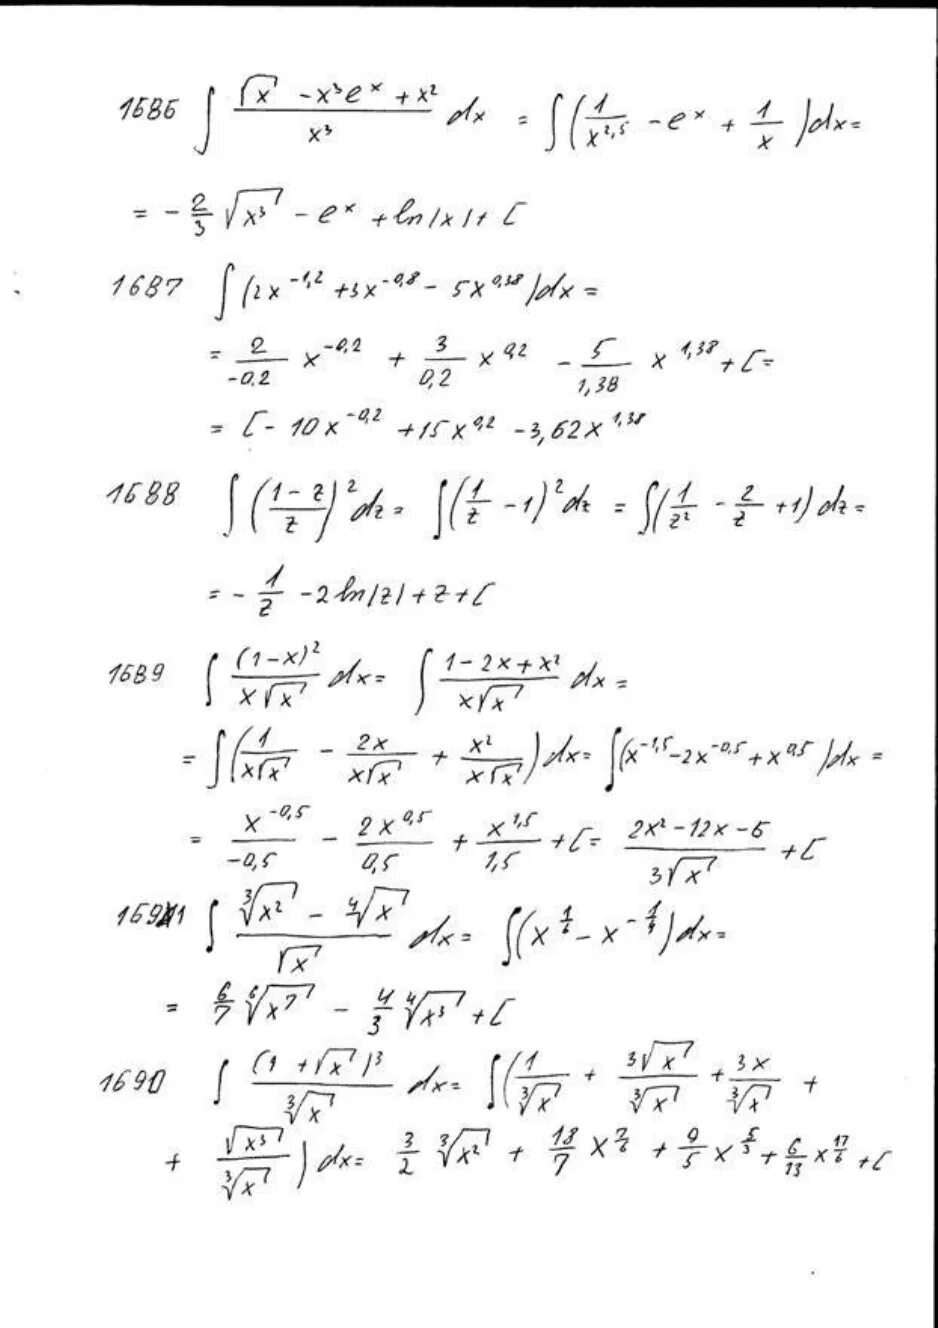 1686 ∫ (√x - x³eˣ + x²)/x³ dx = ∫(1/x^2,5 - eˣ + 1/x)dx =
= - 2/3 √x³ - eˣ + ln|x| + C
1687 ∫(2x^-1,2 + 3x^-0,8 - 5x^0,38)dx =
= 2/-0,2 x^-0,2 + 3/0,2 x^0,2 - 5/1,38 x^1,38 + C =
= C - 10x^-0,2 + 15x^0,2 - 3,62x^1,38
1688 ∫((1-z)/z)² dz = ∫(1/z - 1)² dz = ∫(1/z² - 2/z + 1)dz =
= - 1/z - 2 ln|z| + z + C
1689 ∫ (1-x)²/(x√x) dx = ∫ (1 - 2x + x²)/(x√x) dx =
= ∫(1/(x√x) - 2x/(x√x) + x²/(x√x))dx = ∫(x^-1,5 - 2x^-0,5 + x^0,5)dx =
= x^-0,5/-0,5 - 2x^0,5/0,5 + x^1,5/1,5 + C = (2x² - 12x - 6)/(3√x) + C
1691 ∫ (∛x² - ∜x)/√x dx = ∫(x^1/6 - x^-1/4)dx =
= 6/7 ⁶√x⁷ - 4/3 ∜x³ + C
1690 ∫ (1 + √x)³/∛x dx = ∫(1/∛x + 3√x/∛x + 3x/∛x +
+ √x³/∛x)dx = 3/2 ∛x² + 18/7 x^7/6 + 9/5 x^5/3 + 6/13 x^17/6 + C